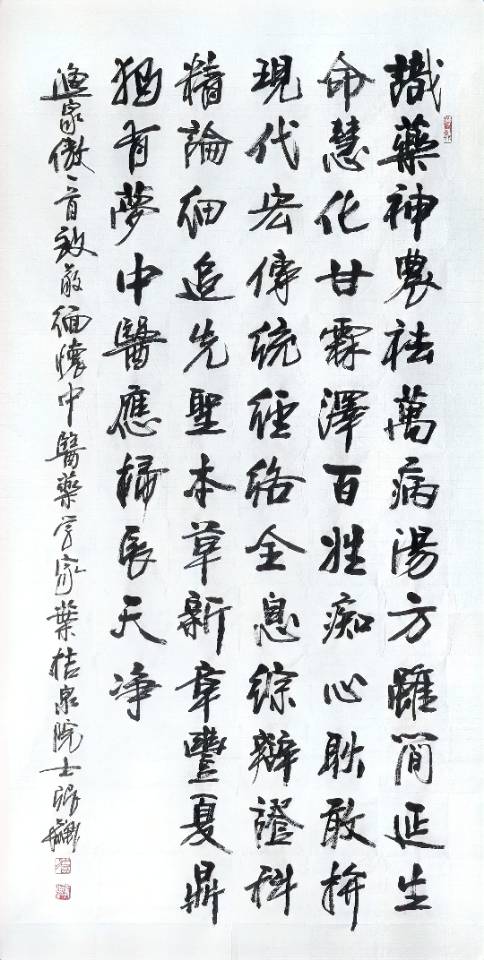 識藥神農祛萬病湯方雖簡延生
命慧化甘霖澤百姓痴心耿敢拚
現代宏傳統經絡全息綜辯證科
精論細追先聖本草新章豐夏鼎
猶有夢中醫應掃長天净
漁家傲一首致敬缅懷中醫藥学家葉桔泉院士